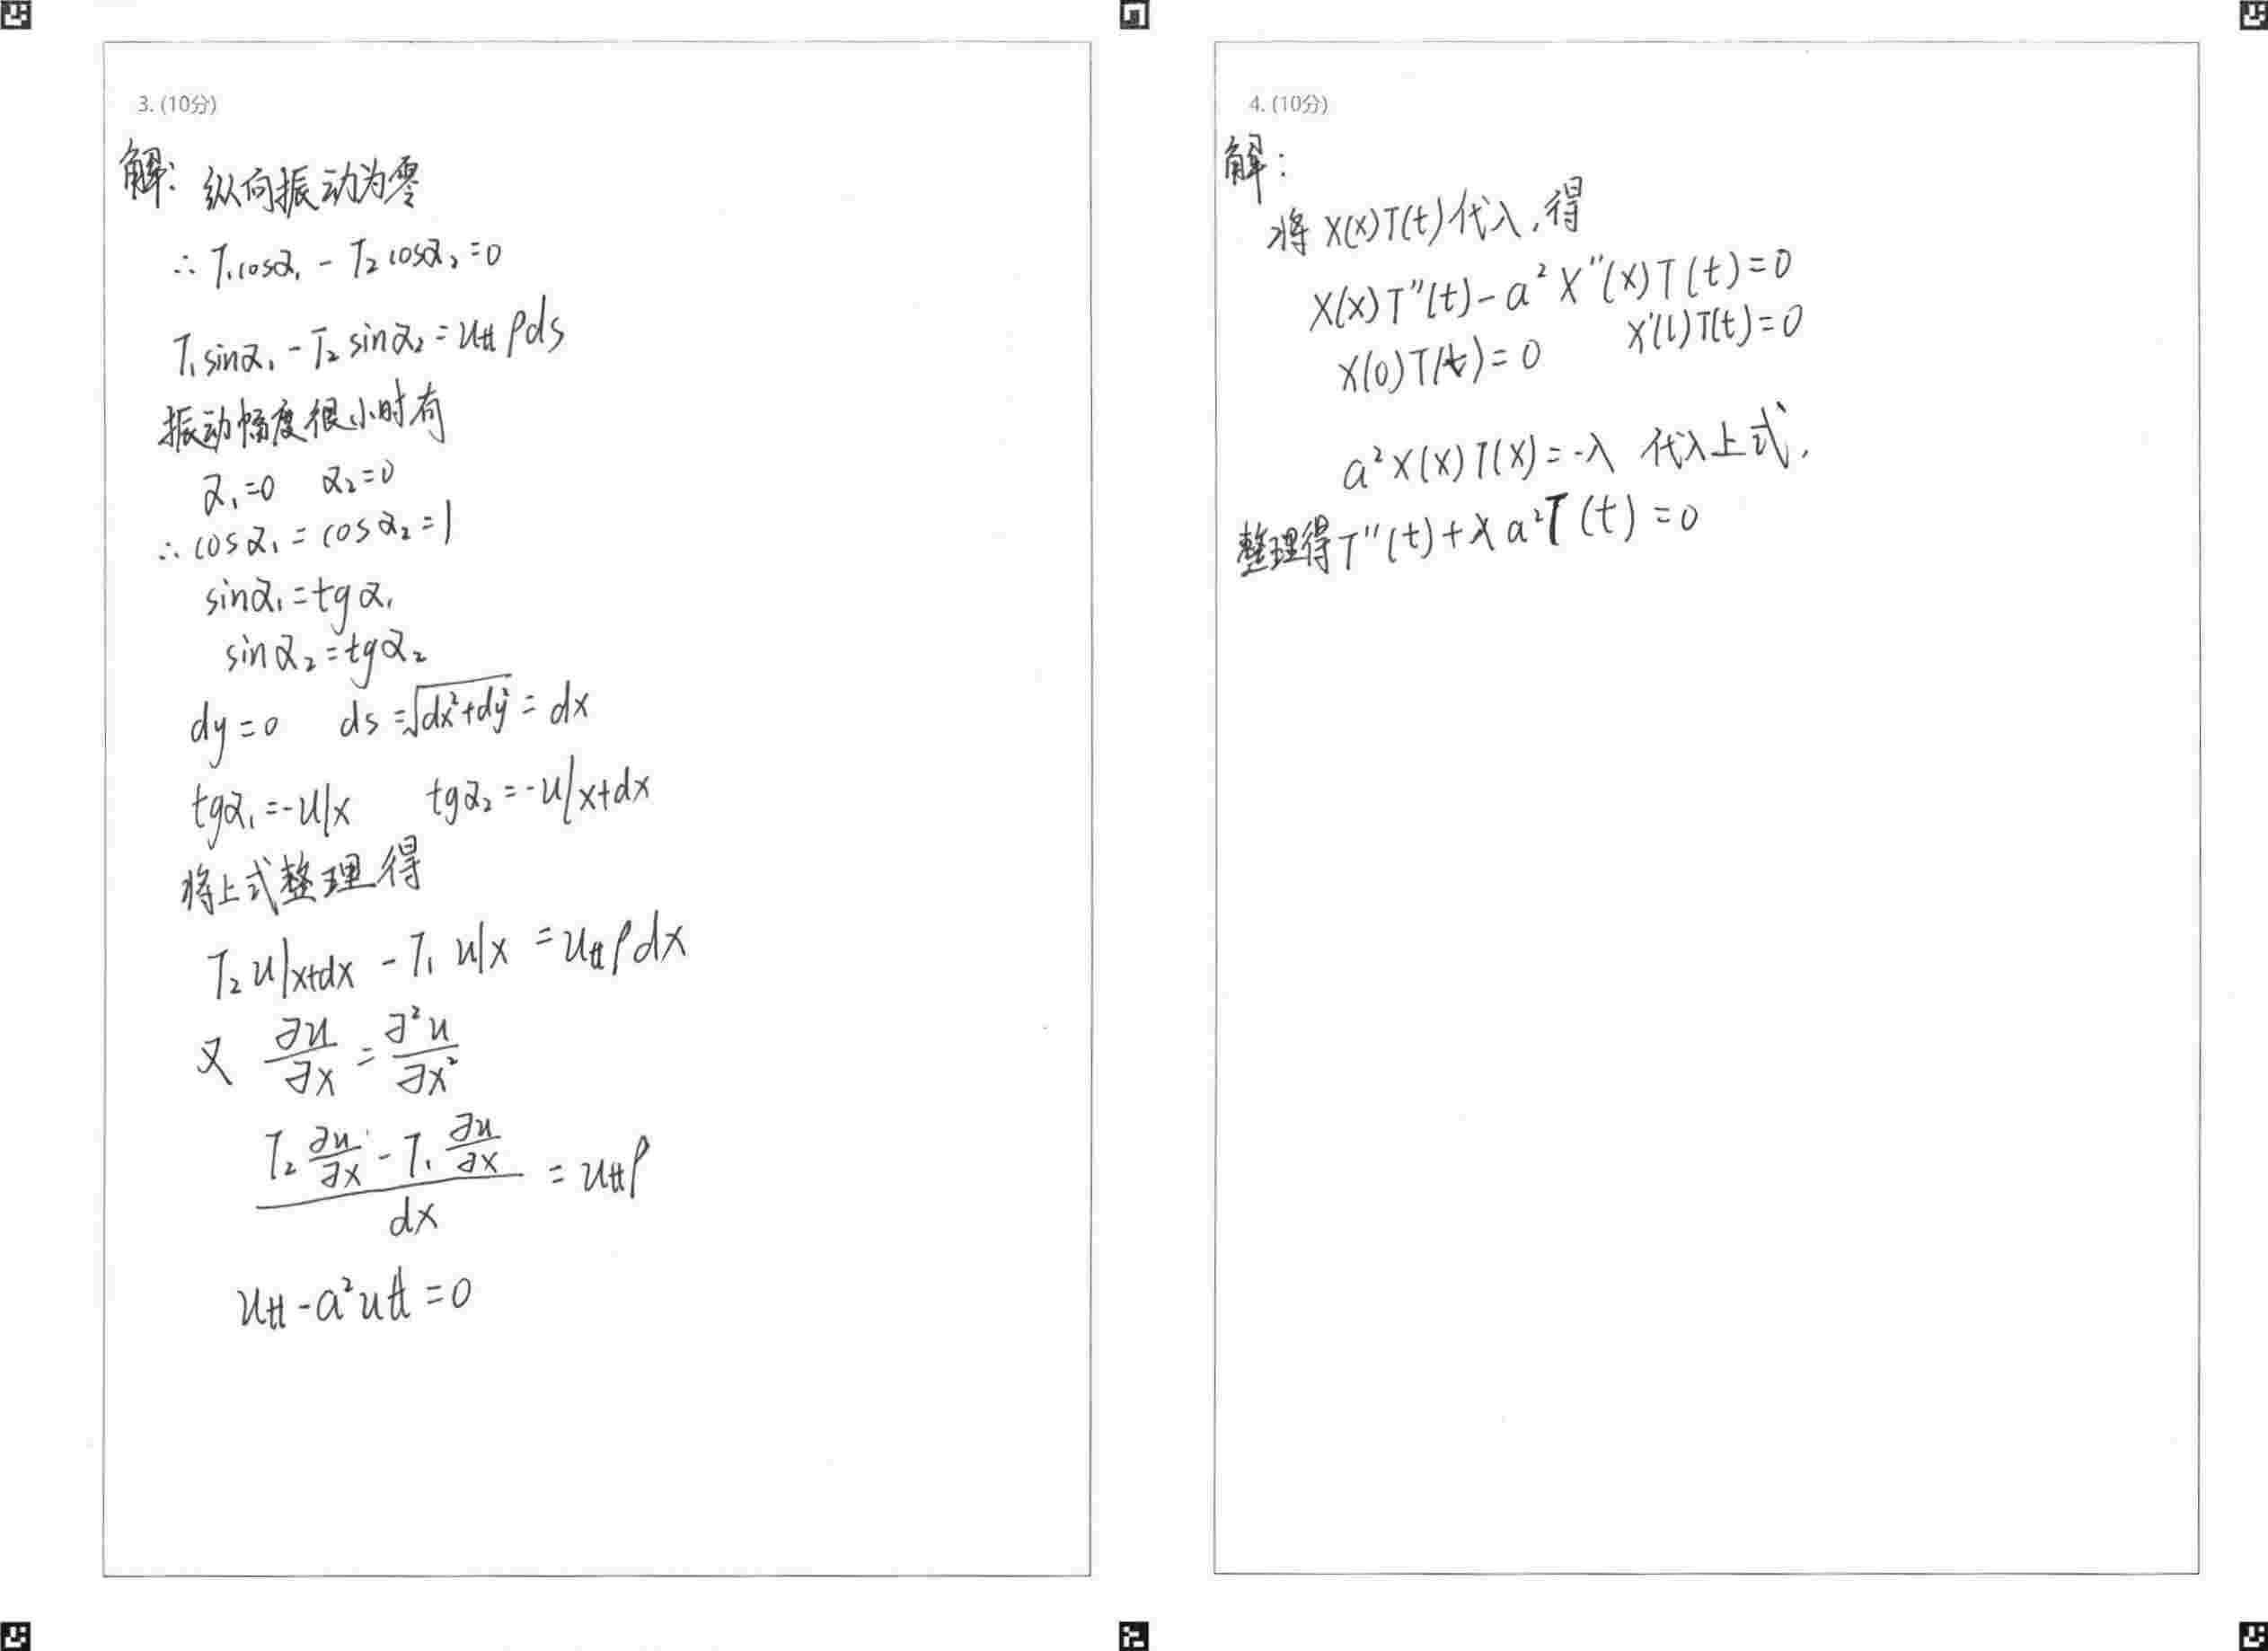 3. (10分)
解: 纵向振动为零
∴ T₁cosα₁ - T₂cosα₂ = 0
T₁sinα₁ - T₂sinα₂ = uₜₜρds
振动幅度很小时有
α₁=0 α₂=0
∴ cosα₁ = cosα₂ = 1
sinα₁ = tgα₁
sinα₂ = tgα₂
dy = 0 ds = √(dx²+dy²) = dx
tgα₁ = -u|x tgα₂ = -u|x+dx
将上式整理得
T₂u|x+dx - T₁u|x = uₜₜρdx
又 ∂u/∂x = ∂²u/∂x²
(T₂ ∂u/∂x - T₁ ∂u/∂x)/dx = uₜₜρ
uₜₜ - a²utt = 0
4. (10分)
解:
将 X(x)T(t)代入,得
X(x)T''(t) - a²X''(x)T(t) = 0
X(0)T(t) = 0 X'(l)T(t) = 0
a²X(x)T(x) = -λ 代入上式,
整理得 T''(t) + λa²T(t) = 0